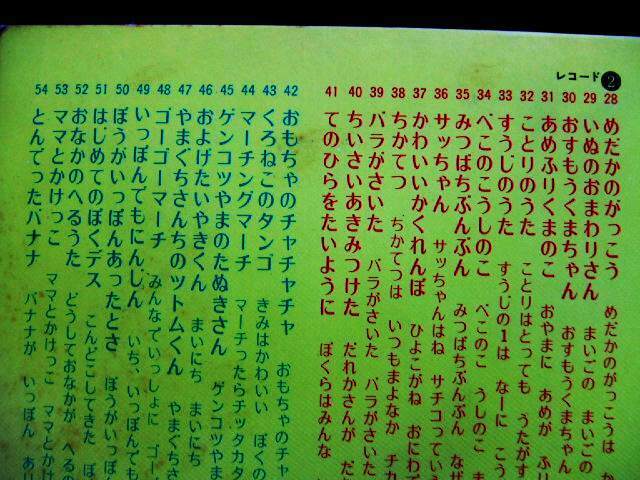 レコード2
28 めだかのがっこう めだかのがっこうは か
29 いぬのおまわりさん まいごの まいごの
30 おすもうくまちゃん おすもうくまちゃん
31 あめふりくまのこ おやまに あめが ふり
32 ことりのうた ことりはとっても うたがす
33 すうじのうた すうじの1は なーに こう
34 べこのこうしのこ べこのこ うしのこ ま
35 みつばちぶんぶん みつばちぶんぶん なぜ
36 サッちゃん サッちゃんはね サチコっていう
37 かわいいかくれんぼ ひよこがね おにわで
38 ちかてつ ちかてつは いつもまよなか チカ
39 バラがさいた バラがさいた バラがさいた
40 ちいさいあきみつけた だれかさんが だ
41 てのひらをたいように ぼくらはみんな
42 おもちゃのチャチャチャ おもちゃのチャ
43 くろねこのタンゴ きみはかわいい ぼくの
44 マーチングマーチ マーチったらチッタカタ
45 ゲンコツやまのたぬきさん ゲンコツやま
46 およげたいやきくん まいにち まいにち
47 やまぐちさんちのツトムくん やまぐちさ
48 ゴーゴーマーチ みんなでいっしょに ゴー
49 いっぽんでもにんじん いち、いっぽんでも
50 ぼうがいっぽんあったとさ ぼうがいっぽん
51 はじめてのぼくデス こんどこしてきた ぼ
52 おなかのへるうた どうしておなかが へるの
53 ママとかけっこ ママとかけっこ ママとかけ
54 とんでったバナナ バナナが いっぽん あり